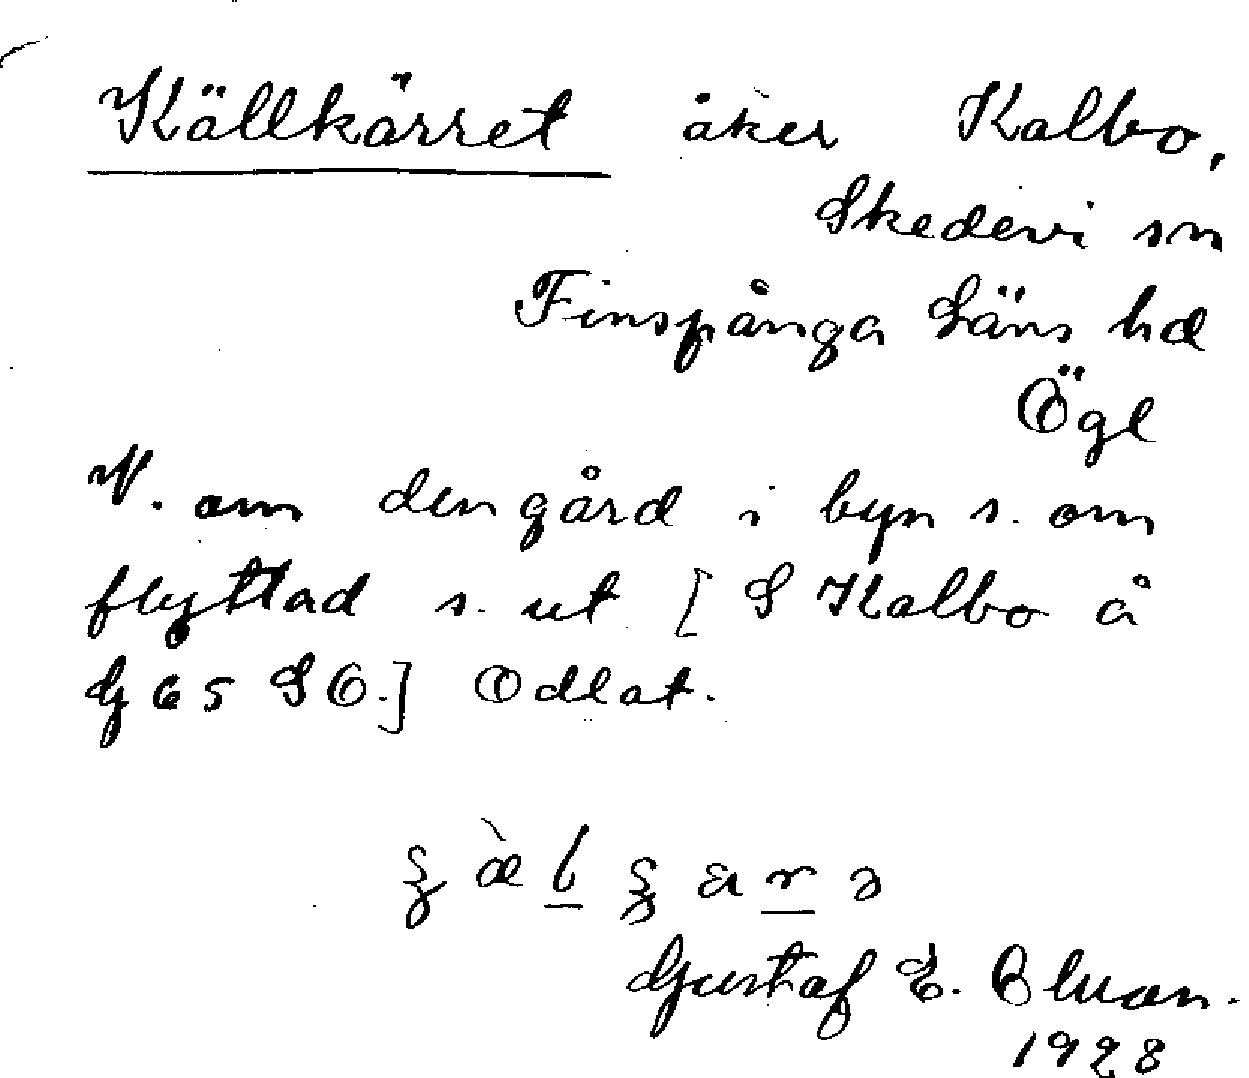 Källkärret åker Kalbo,
Skedevi sn
Finspånga Läns hd
Ögl
V. om den gård i byn s. om
flyttad s. ut [S Kalbo å
G 65 SO.] Odlat.
Gustaf E.
1928